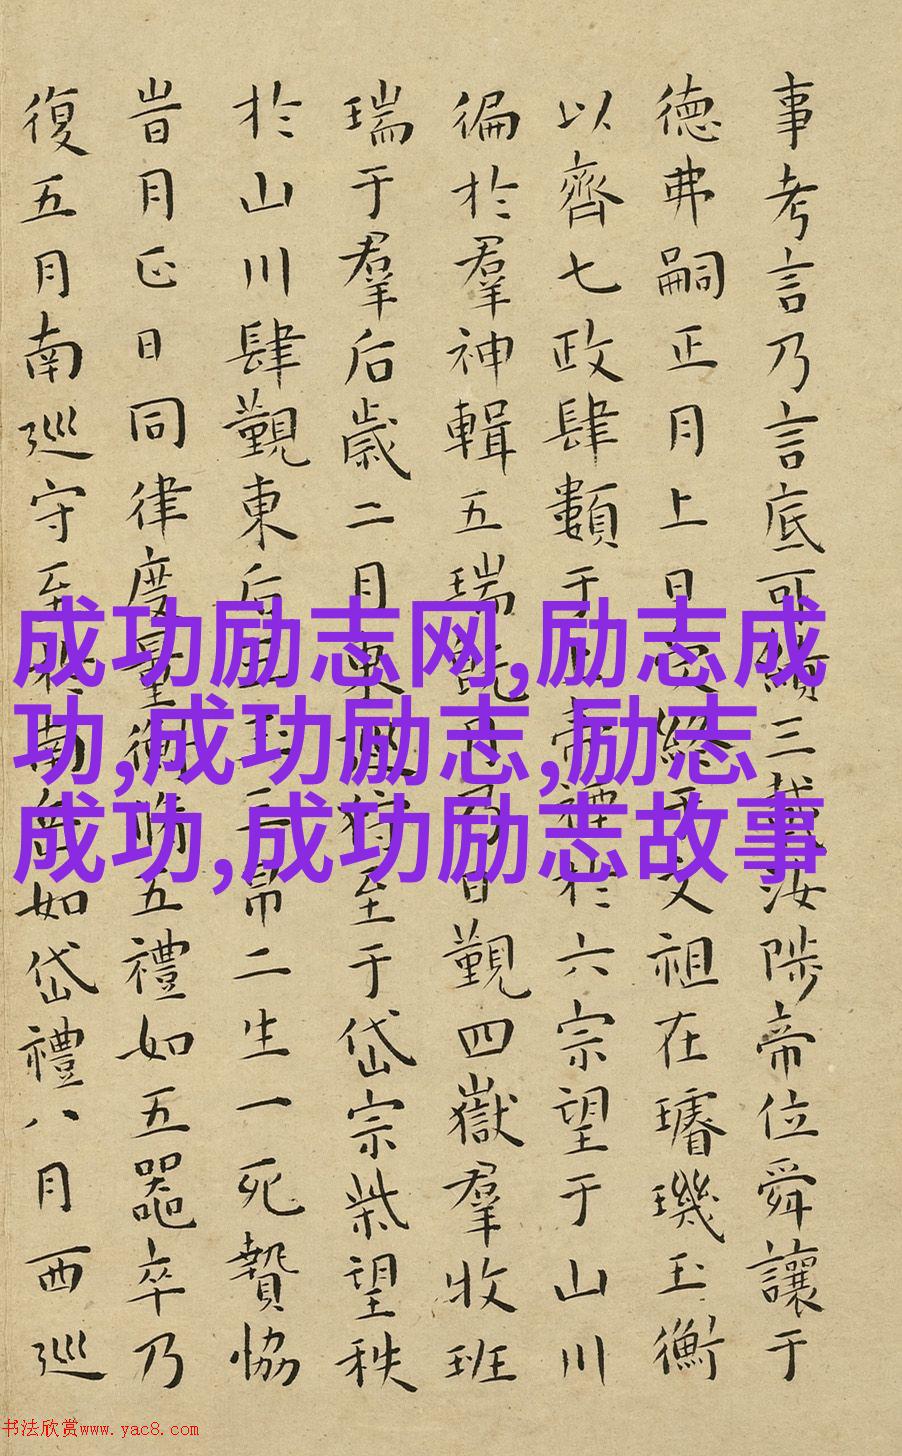 事考言乃言底可績三載汝陟帝位舜讓于
德弗嗣正月上日受終于文祖在璿璣玉衡
以齊七政肆類于上帝禋於六宗望于山川
徧於羣神輯五瑞旣月乃日覲四嶽羣牧班
瑞于羣后歲二月東巡狩至于岱宗柴望秩
於山川肆覲東后五玉三帛二生一死贄協
旹月正日同律度量衡脩五禮如五器卒乃
復五月南巡守至於南岳如岱禮八月西巡
成功励志网,励志成
功,成功励志,励志
成功,成功励志故事
书法欣赏www.yac8.com